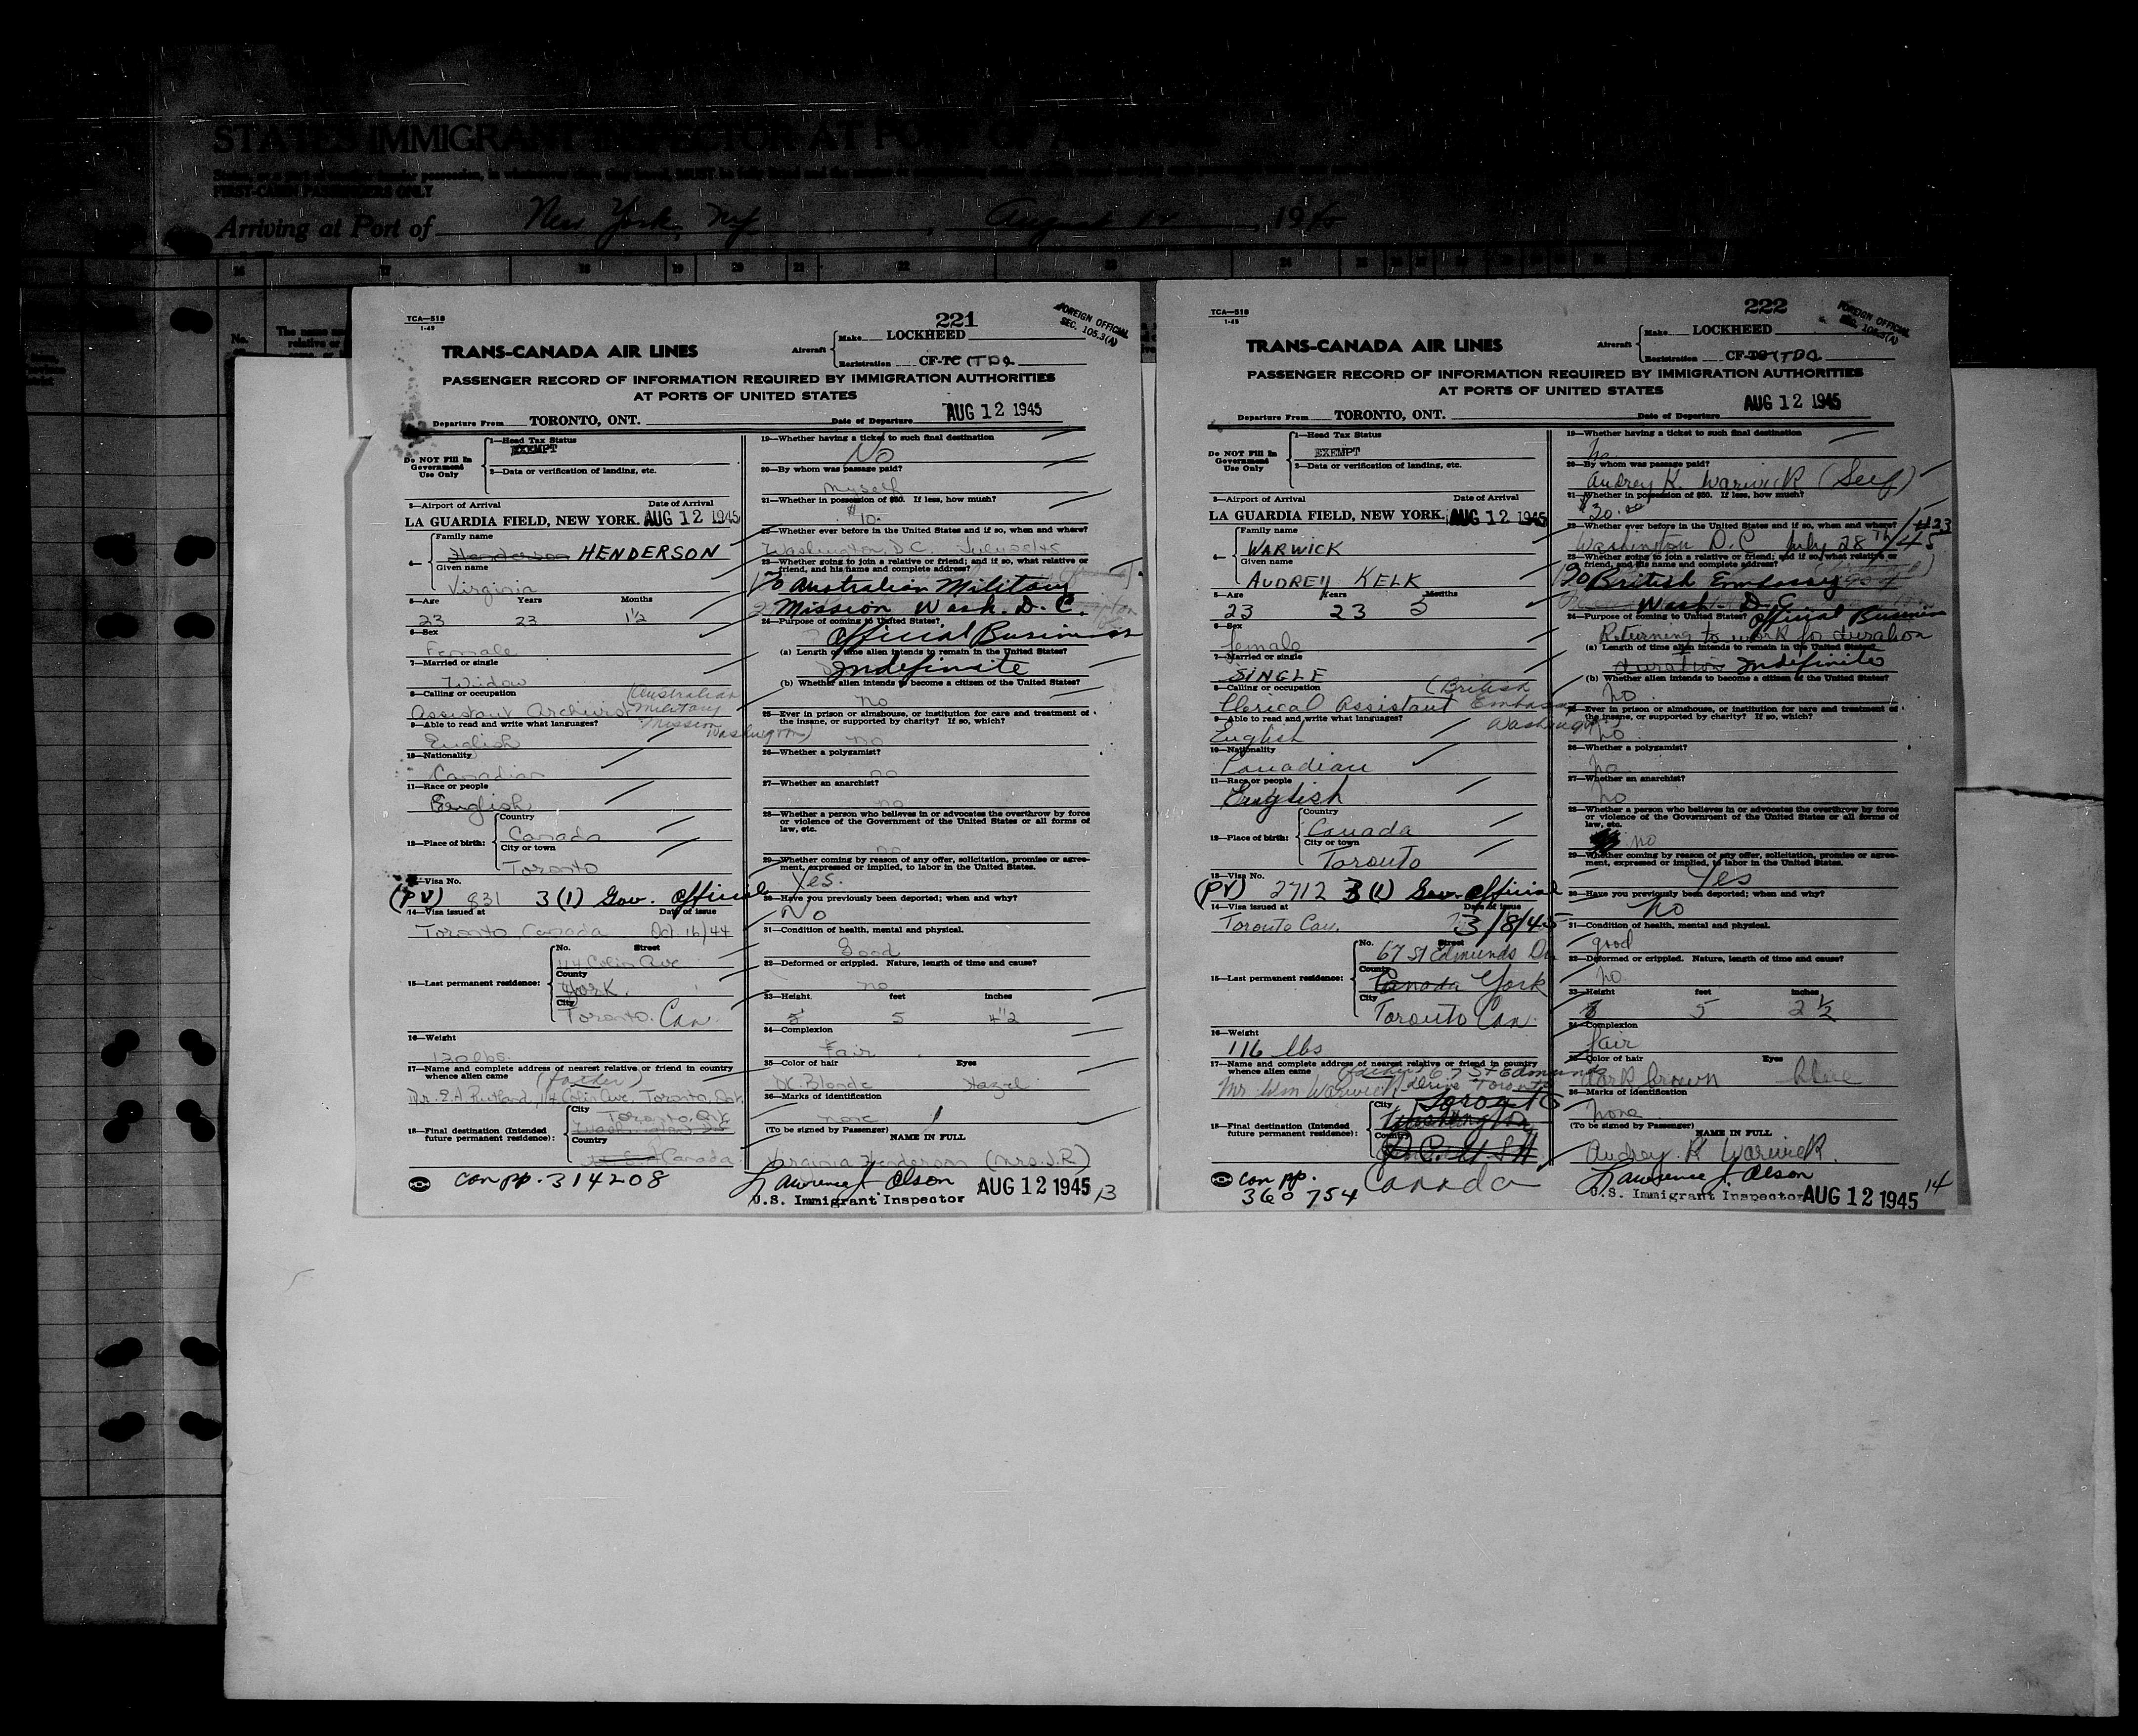 STATES IMMIGRANT INSPECTOR AT PORT OF
FIRST-CABIN PASSENGERS ONLY
Arriving at Port of New York, NY, August 12, 1945
TCA—518
1-45
221
FOREIGN OFFICIAL
SEC. 105.3(A)
TRANS-CANADA AIR LINES
Aircraft
Make LOCKHEED
Registration CF-TC (TDQ
PASSENGER RECORD OF INFORMATION REQUIRED BY IMMIGRATION AUTHORITIES
AT PORTS OF UNITED STATES
Departure From TORONTO, ONT. Date of Departure AUG 12 1945
Do NOT Fill In
Government
Use Only
1—Head Tax Status
EXEMPT
2—Data or verification of landing, etc.
3—Airport of Arrival Date of Arrival
LA GUARDIA FIELD, NEW YORK. AUG 12 1945
4— Family name
Henderson HENDERSON
Given name
Virginia
5—Age Years Months
23 23 1½
6—Sex
Female
7—Married or single
Widow
8—Calling or occupation
Assistant Archivist (Australian Military Mission Washington)
9—Able to read and write what languages?
English
10—Nationality
Canadian
11—Race or people
English
12—Place of birth:
Country
Canada
City or town
Toronto
13—Visa No.
(PV) 831 3(1) Gov. Official
14—Visa issued at Date of issue
Toronto, Canada Oct 16/44
15—Last permanent residence:
No. Street
114 Colin Ave
County
York.
City
Toronto. Can.
16—Weight
120 lbs.
17—Name and complete address of nearest relative or friend in country
whence alien came (father)
Dr. E.A. Rutland, 114 Colin Ave, Toronto, Ont.
18—Final destination (Intended
future permanent residence):
City
Toronto, Ont.
Country
Canada
Can pp. 314208
19—Whether having a ticket to such final destination
No
20—By whom was passage paid?
myself
21—Whether in possession of $50. If less, how much?
$10.
22—Whether ever before in the United States and if so, when and where?
Washington, D.C.
23—Whether going to join a relative or friend; and if so, what relative or
friend, and his name and complete address?
To Australian Military
Mission Wash. D.C.
24—Purpose of coming to United States?
Official Business
(a) Length of time alien intends to remain in the United States?
Indefinite
(b) Whether alien intends to become a citizen of the United States?
no
25—Ever in prison or almshouse, or institution for care and treatment of
the insane, or supported by charity? If so, which?
no
26—Whether a polygamist?
no
27—Whether an anarchist?
no
28—Whether a person who believes in or advocates the overthrow by force
or violence of the Government of the United States or all forms of
law, etc.
no
29—Whether coming by reason of any offer, solicitation, promise or agree-
ment, expressed or implied, to labor in the United States.
Yes.
30—Have you previously been deported; when and why?
No
31—Condition of health, mental and physical.
Good
32—Deformed or crippled. Nature, length of time and cause?
no
33—Height. feet inches
5 5 4½
34—Complexion
Fair
35—Color of hair Eyes
Dk. Blonde Hazel
36—Marks of identification
none
(To be signed by Passenger) NAME IN FULL
Virginia Henderson (Mrs. J.R.)
Lawrence J. Olson
U.S. Immigrant Inspector AUG 12 1945 13
TCA—518
1-45
222
FOREIGN OFFICIAL
SEC. 105.3(A)
TRANS-CANADA AIR LINES
Aircraft
Make LOCKHEED
Registration CF-TC (TDQ
PASSENGER RECORD OF INFORMATION REQUIRED BY IMMIGRATION AUTHORITIES
AT PORTS OF UNITED STATES
Departure From TORONTO, ONT. Date of Departure AUG 12 1945
Do NOT Fill In
Government
Use Only
1—Head Tax Status
EXEMPT
2—Data or verification of landing, etc.
3—Airport of Arrival Date of Arrival
LA GUARDIA FIELD, NEW YORK. AUG 12 1945
4— Family name
WARWICK
Given name
AUDREY KELK
5—Age Years Months
23 23 5
6—Sex
female
7—Married or single
SINGLE
8—Calling or occupation
Clerical Assistant (British Embassy Washington)
9—Able to read and write what languages?
English
10—Nationality
Canadian
11—Race or people
English
12—Place of birth:
Country
Canada
City or town
Toronto
13—Visa No.
(PV) 2712 3(1) Gov. Official
14—Visa issued at Date of issue
Toronto Can. 3/8/45
15—Last permanent residence:
No. Street
67 St Edmunds Dr
County
Canada York
City
Toronto Can.
16—Weight
116 lbs
17—Name and complete address of nearest relative or friend in country
whence alien came
Mr Wm Warwick 67 St Edmunds drive Toronto
18—Final destination (Intended
future permanent residence):
City
Toronto
Washington
Country
D.C. U.S.A
Canada
Can pp.
360754
19—Whether having a ticket to such final destination
no
20—By whom was passage paid?
Audrey K. Warwick (Self)
21—Whether in possession of $50. If less, how much?
$20.00
22—Whether ever before in the United States and if so, when and where?
Washington D.C July 28th/45
23—Whether going to join a relative or friend; and if so, what relative or
friend, and his name and complete address?
To British Embassy
Wash. D.C.
24—Purpose of coming to United States? Official Business
Returning to work for duration
(a) Length of time alien intends to remain in the United States?
duration Indefinite
(b) Whether alien intends to become a citizen of the United States?
no
25—Ever in prison or almshouse, or institution for care and treatment of
the insane, or supported by charity? If so, which?
no
26—Whether a polygamist?
no
27—Whether an anarchist?
no
28—Whether a person who believes in or advocates the overthrow by force
or violence of the Government of the United States or all forms of
law, etc.
no
29—Whether coming by reason of any offer, solicitation, promise or agree-
ment, expressed or implied, to labor in the United States.
Yes
30—Have you previously been deported; when and why?
no
31—Condition of health, mental and physical.
good
32—Deformed or crippled. Nature, length of time and cause?
no
33—Height feet inches
5 2½
34—Complexion
fair
35—Color of hair Eyes
dark brown blue
36—Marks of identification
none
(To be signed by Passenger) NAME IN FULL
Audrey K Warwick.
Lawrence J. Olson
U.S. Immigrant Inspector AUG 12 1945 14